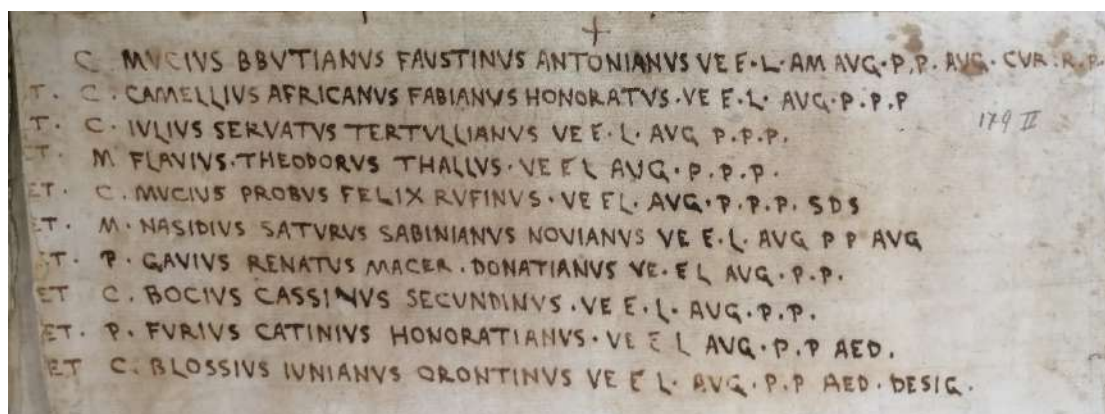 +
C. MVCIVS BBVTIANVS FAVSTINVS ANTONIANVS VE E·L·AM AVG·P.P. AVG· CVR·R.P.
T. C. CAMELLIVS AFRICANVS FABIANVS HONORATVS·VE E.L. AVG·P.P.P
T. C. IVLIVS SERVATVS TERTVLLIANVS VE E.L. AVG P.P.P.
179 II
ET. M FLAVIVS·THEODORVS THALLVS·VE E L AVG·P.P.P.
ET. C. MVCIVS PROBVS FELIX RVFINVS·VE EL. AVG·P.P.P. SDS
ET. M·NASIDIVS SATVRVS SABINIANVS NOVIANVS VE E.L. AVG P P AVG
ET. P. GAVIVS RENATVS MACER·DONATIANVS VE·EL AVG·P.P.
ET C. BOCIVS CASSINVS SECVNDINVS·VE E·L· AVG·P.P.
ET. P. FVRIVS CATINIVS HONORATIANVS·VE E L AVG·P.P AED.
ET C. BLOSSIVS IVNIANVS ORONTINVS VE E L· AVG·P.P AED·DESIG·